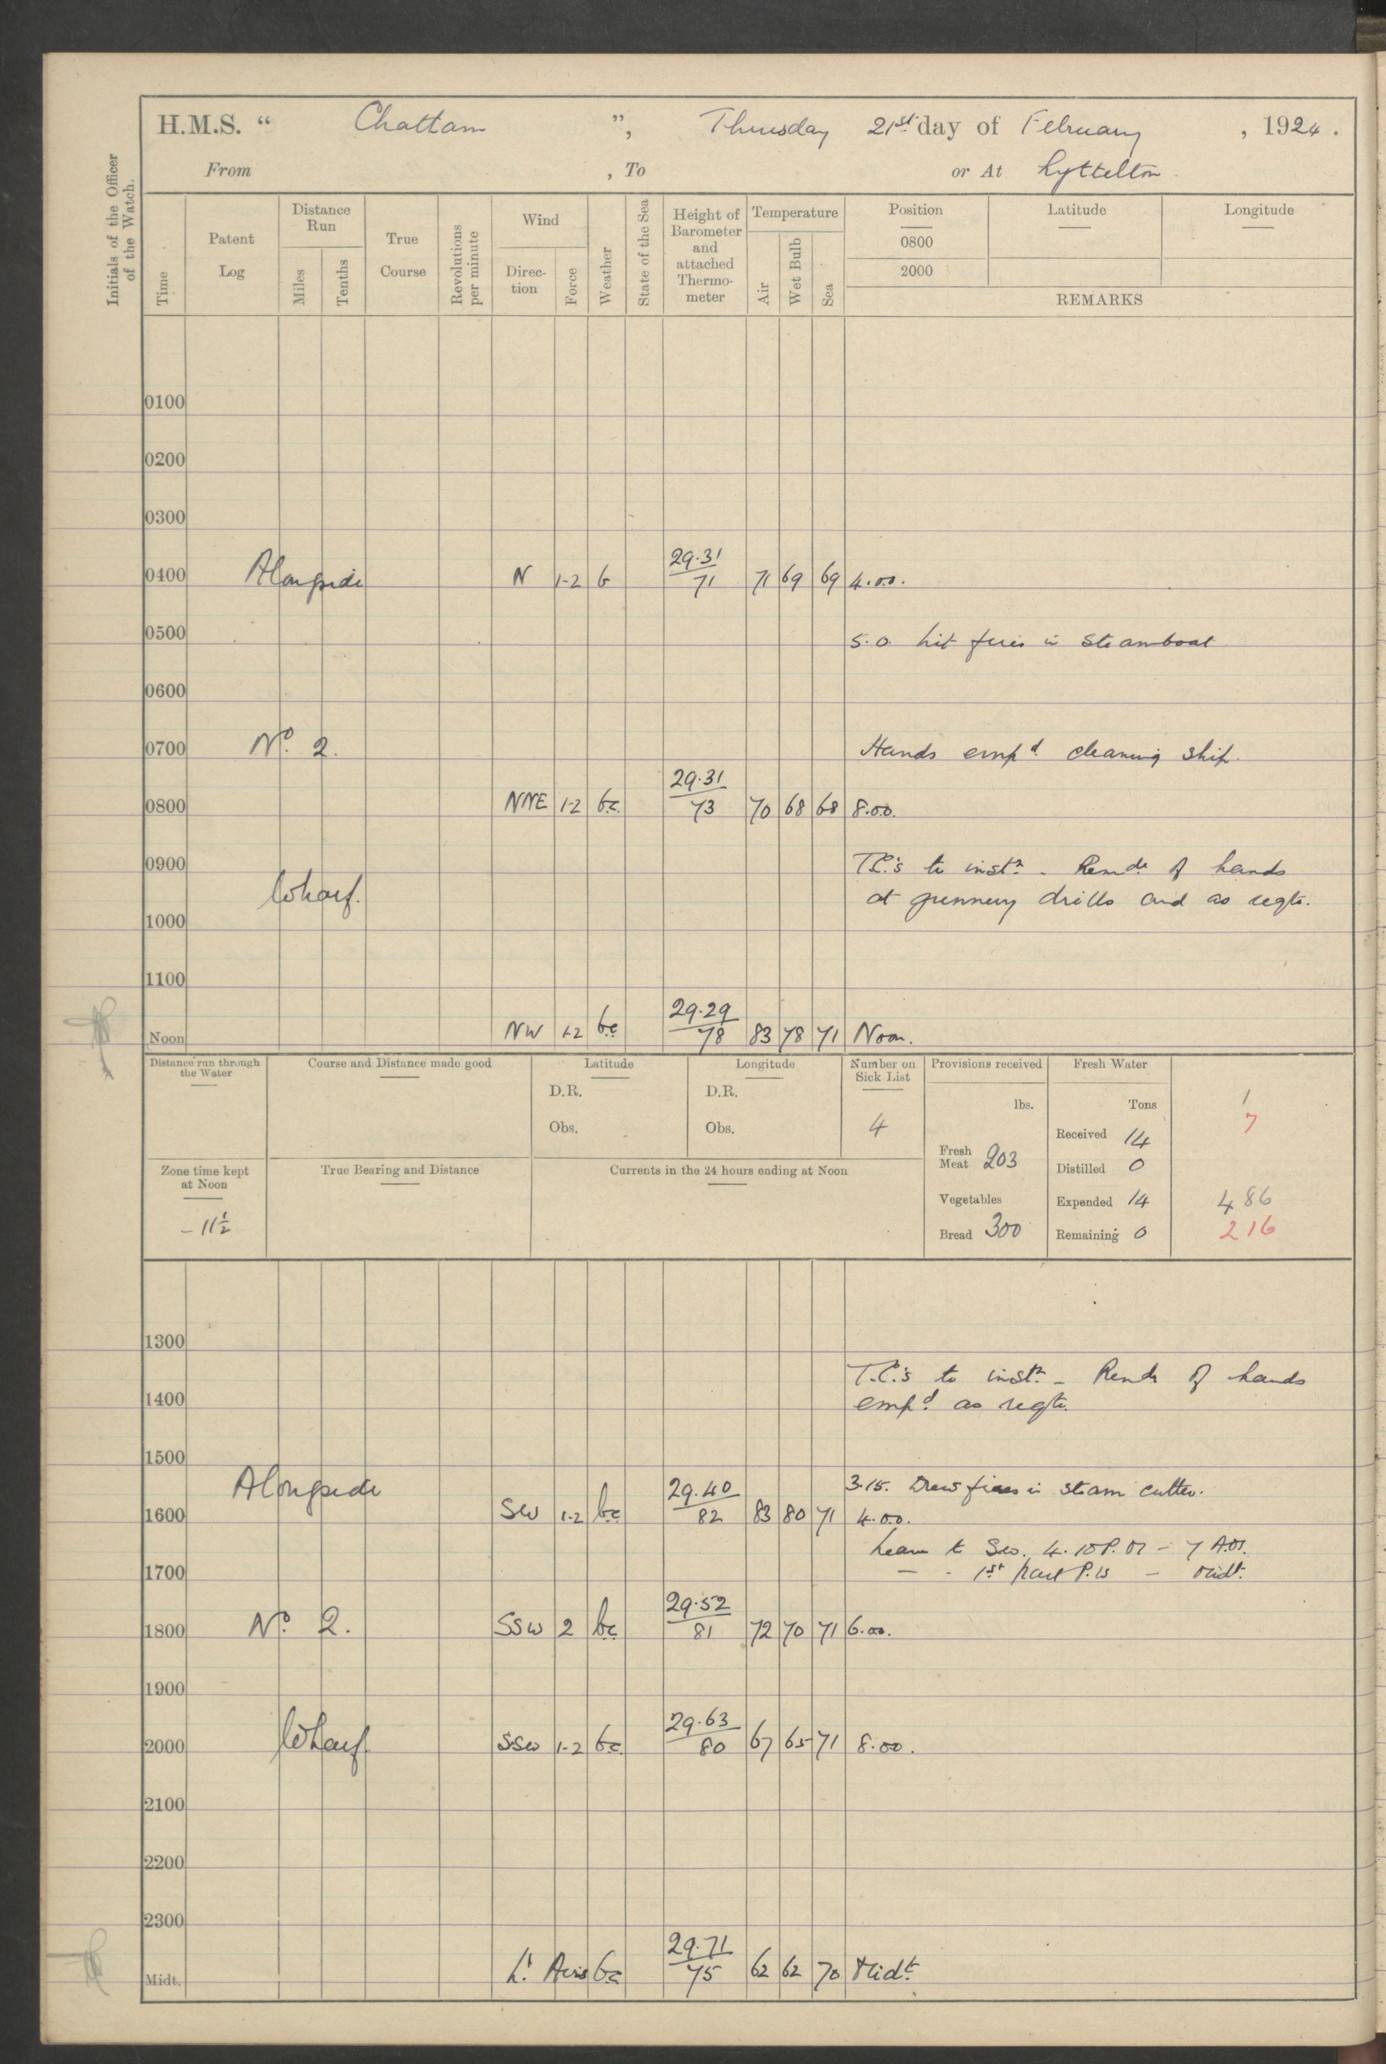 H.M.S. “ Chattam ”, Thursday 21st day of February , 1924 .
From , To or At Lyttelton
Initials of the Officer of the Watch.
Time
Patent Log
Distance Run
Miles
Tenths
True Course
Revolutions per minute
Wind
Direc-tion
Force
Weather
State of the Sea
Height of Barometer and attached Thermo-meter
Temperature
Air
Wet Bulb
Sea
Position
0800
2000
Latitude
Longitude
REMARKS
0100
0200
0300
0400 Alongside N 1-2 b 29.31/71 71 69 69 4.00.
0500 5.0. Lit fires in Steamboat
0600
0700 No. 2. Hands empd. cleaning ship.
0800 NNE 1-2 bc. 29.31/73 70 68 68 8.00.
0900 T.C.'s to instn. - Remdr. of hands
Wharf. at gunnery drills and as reqte.
1000
1100
Noon NW 1-2 bc 29.29/78 83 78 71 Noon.
Distance run through the Water
Course and Distance made good
Latitude
D.R.
Obs.
Longitude
D.R.
Obs.
Number on Sick List
4
Provisions received
lbs.
Fresh Meat 203
Vegetables
Bread 300
Fresh Water
Tons
Received 14
Distilled 0
Expended 14
Remaining 0
1
7
486
216
Zone time kept at Noon
- 11½
True Bearing and Distance
Currents in the 24 hours ending at Noon
1300
T.C.'s to instn. - Remdr of hands
1400 empd. as reqte.
1500
Alongside 3.15. Drew fires in steam cutter.
1600 SW 1-2 bc 29.40/82 83 80 71 4.00.
Leave to 4.15 P.M - 7 A.M.
1700 — - 1st part P.M — Midt.
1800 No. 2. SSW 2 bc 29.52/81 72 70 71 6.00.
1900
2000 Wharf SSW 1-2 bc. 29.63/80 67 65 71 8.00.
2100
2200
2300
Midt. Lt. Airs bc 29.71/75 62 62 70 Midt.